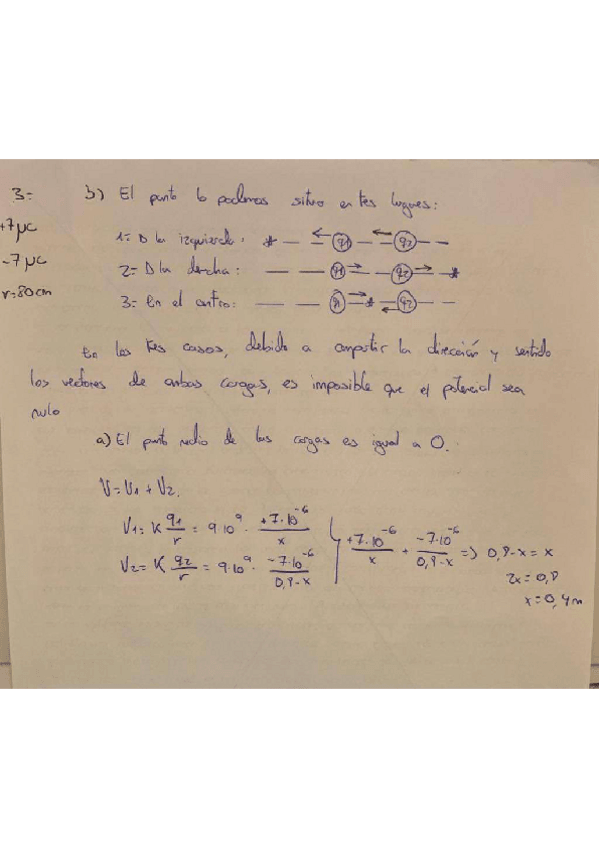 3=
+7 μC
-7 μC
r=80cm
b) El punto lo podemos situar en tres lugares:
1= D la izquierda: * — — q1 — q2 — —
2= D la derecha: — — q1 — q2 — *
3= En el centro: — — q1 — * — q2 — —
En los tres casos, debido a compartir la dirección y sentido
los vectores de ambas cargas, es imposible que el potencial sea
nulo
a) El punto medio de las cargas es igual a 0.
V=V1+V2.
V1= K q1/r = 9·10^9 · +7·10^-6/x
V2= K q2/r = 9·10^9 · -7·10^-6/0,8-x
+7·10^-6/x + -7·10^-6/0,8-x => 0,8-x = x
2x=0,8
x=0,4m